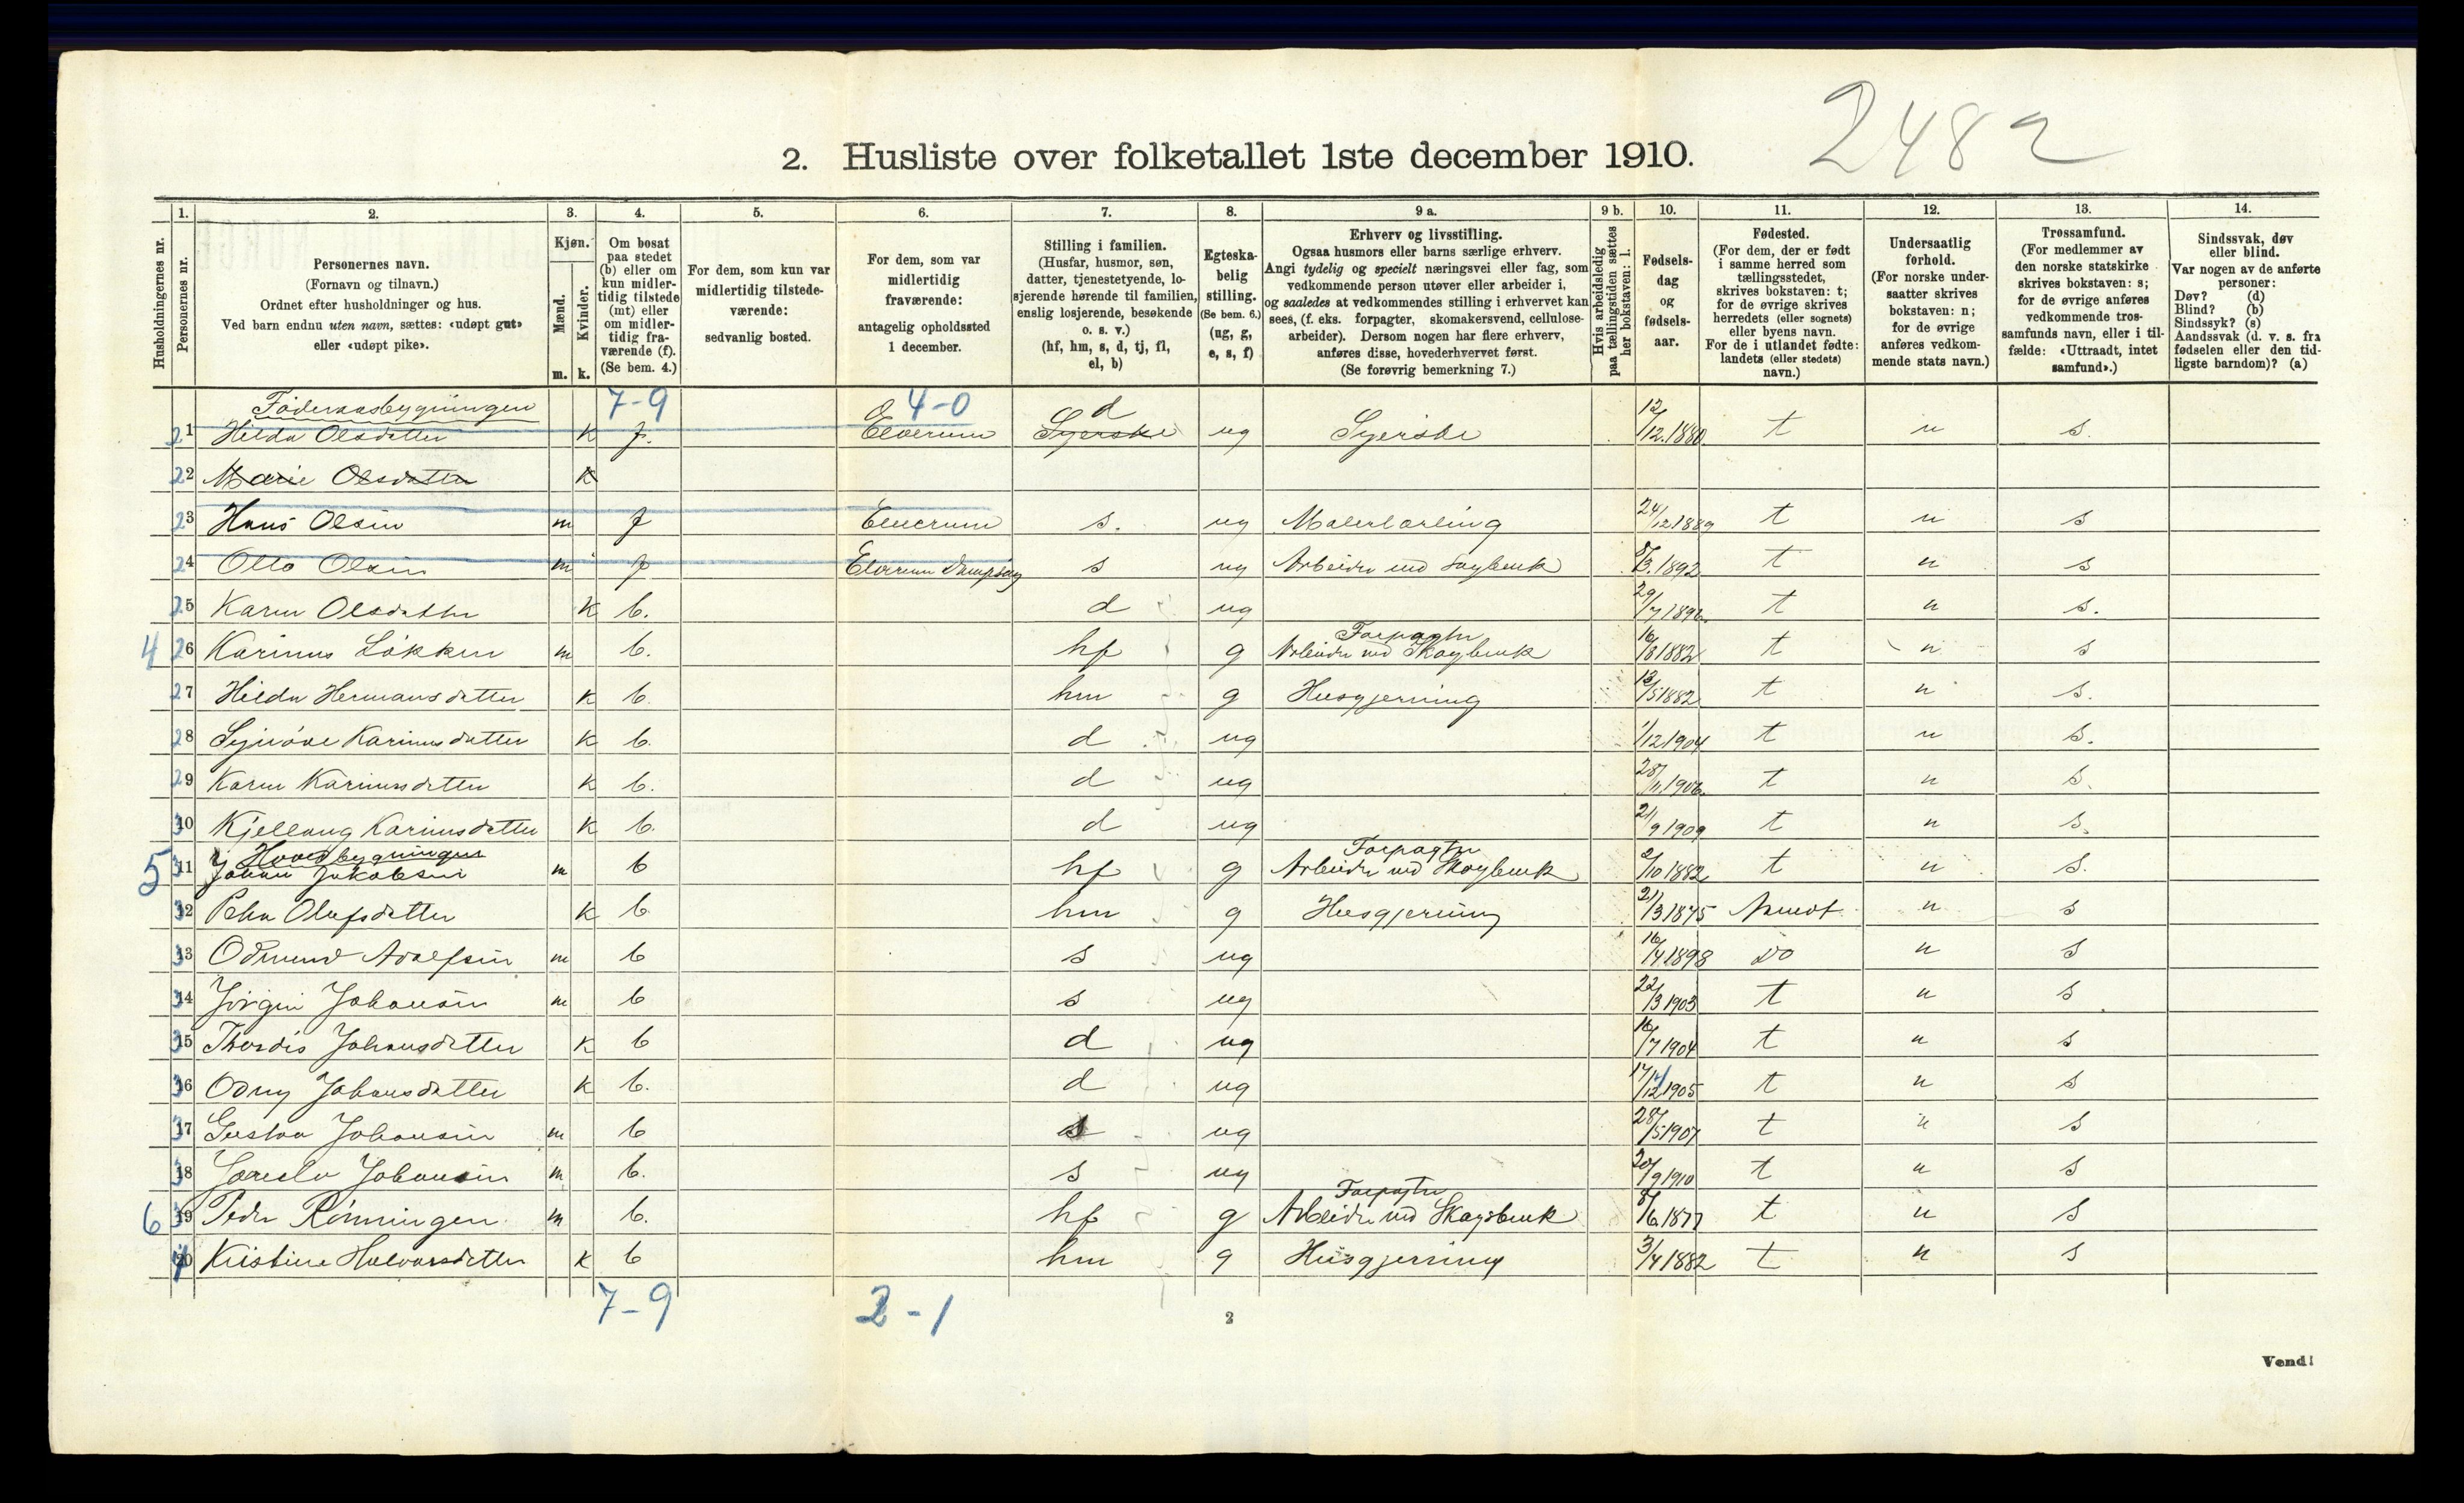 2482
2. Husliste over folketallet 1ste december 1910.
Husholdningernes nr.
1. Personernes nr.
2. Personernes navn.
(Fornavn og tilnavn.)
Ordnet efter husholdninger og hus.
Ved barn endnu uten navn, sættes: «udøpt gut»
eller «udøpt pike».
3. Kjøn.
Mænd. m.
Kvinder. k.
4. Om bosat
paa stedet
(b) eller om
kun midler-
tidig tilstede
(mt) eller
om midler-
tidig fra-
værende (f).
(Se bem. 4.)
5. For dem, som kun var
midlertidig tilstede-
værende:
sedvanlig bosted.
6. For dem, som var
midlertidig
fraværende:
antagelig opholdssted
1 december.
7. Stilling i familien.
(Husfar, husmor, søn,
datter, tjenestetyende, lo-
sjerende hørende til familien,
enslig losjerende, besøkende
o. s. v.)
(hf, hm, s, d, tj, fl,
el, b)
8. Egteska-
belig
stilling.
(Se bem. 6.)
(ug, g,
e, s, f)
9 a. Erhverv og livsstilling.
Ogsaa husmors eller barns særlige erhverv.
Angi tydelig og specielt næringsvei eller fag, som
vedkommende person utøver eller arbeider i,
og saaledes at vedkommendes stilling i erhvervet kan
sees, (f. eks. forpagter, skomakersvend, cellulose-
arbeider). Dersom nogen har flere erhverv,
anføres disse, hovederhvervet først.
(Se forøvrig bemerkning 7.)
9 b. Hvis arbeidsledig
paa tællingstiden sættes
her bokstaven: l.
10. Fødsels-
dag
og
fødsels-
aar.
11. Fødested.
(For dem, der er født
i samme herred som
tællingsstedet,
skrives bokstaven: t;
for de øvrige skrives
herredets (eller sognets)
eller byens navn.
For de i utlandet fødte:
landets (eller stedets)
navn.)
12. Undersaatlig
forhold.
(For norske under-
saatter skrives
bokstaven: n;
for de øvrige
anføres vedkom-
mende stats navn.)
13. Trossamfund.
(For medlemmer av
den norske statskirke
skrives bokstaven: s;
for de øvrige anføres
vedkommende tros-
samfunds navn, eller i til-
fælde: «Uttraadt, intet
samfund».)
14. Sindssvak, døv
eller blind.
Var nogen av de anførte
personer:
Døv? (d)
Blind? (b)
Sindssyk? (s)
Aandssvak (d. v. s. fra
fødselen eller den tid-
ligste barndom)? (a)
Föderaadsbygningen 7-9 4-0 d
21 Hilda Olsdatter k f. Elverum Syerske ug Syerske 12/12.1880 t n s.
22 Marie Olsdatter k
23 Hans Olsen m f Elverum s. ug Malerlærling 24/12 1889 t n s
24 Otto Olsen m f Elverum Dampsag s ug Arbeider ved Sagbruk 8/3.1892 t n s
25 Karen Olsdatter k b. d ug 29/7 1896. t n s.
Forpagter
4 26 Karinus Løkken m b. hf g Arbeider ved Skogbruk 16/8 1882 t n s
27 Hilda Hermansdatter k b. hm g Husgjerning 13/5 1882 t n s.
28 Synöve Karinusdatter k b. d ug 1/12 1904 t n s.
29 Karen Karinusdatter k b. d ug 28/11.1906. t n s.
30 Kjellaug Karinusdatter k b. d ug 21/9 1909 t n s.
Hovedbygningen Forpagter
5 31 Johan Jakobsen m b hf g Arbeider ved Skogbruk 2/10 1882 t n s.
32 Petra Olufsdatter k b hm g Husgjerning 21/3 1875 Aamot n s
33 Odmund Adolfsen m b s ug 16/4.1898 do n s
34 Jörgen Johansen m b s ug 22/3 1903 t n s
35 Thordis Johansdatter k b d ug 16/7 1904 t n s
36 Odny Johansdatter k b. d ug 17/12 1905 t n s
37 Gustav Johansen m b s ug 28/5 1907 t n s
38 Johansen m b. s ug 20/9 1910 t n s
Forpagter
6 39 Peder Rönningen m b. hf g Arbeider ved Skogsbruk 8/6.1877 t n s
40 Kristine Halvorsdatter k b hm g Husgjerning 3/4 1882 t n s
7-9 2-1
2
Vend!